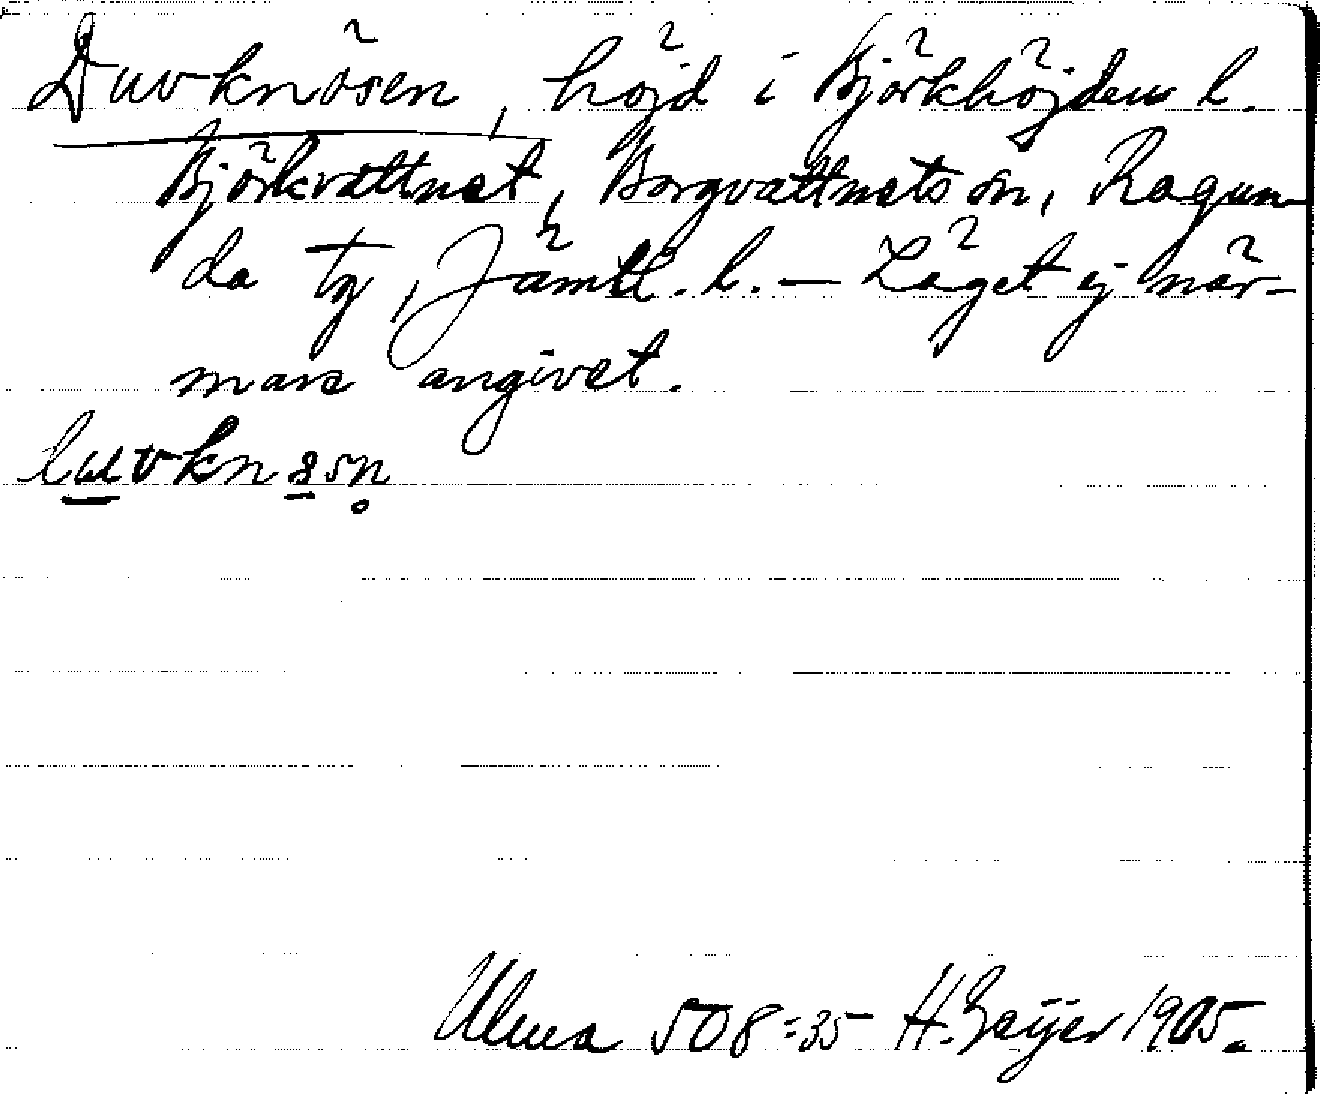 Duvknösen, höjd i Björkhöjden l.
Björkvattnet, Borgvattnets sn, Ragun-
da tg, Jämtl. l. – Läget ej när-
mare angivet.
Ulma 508:35 H. Geijer 1905.